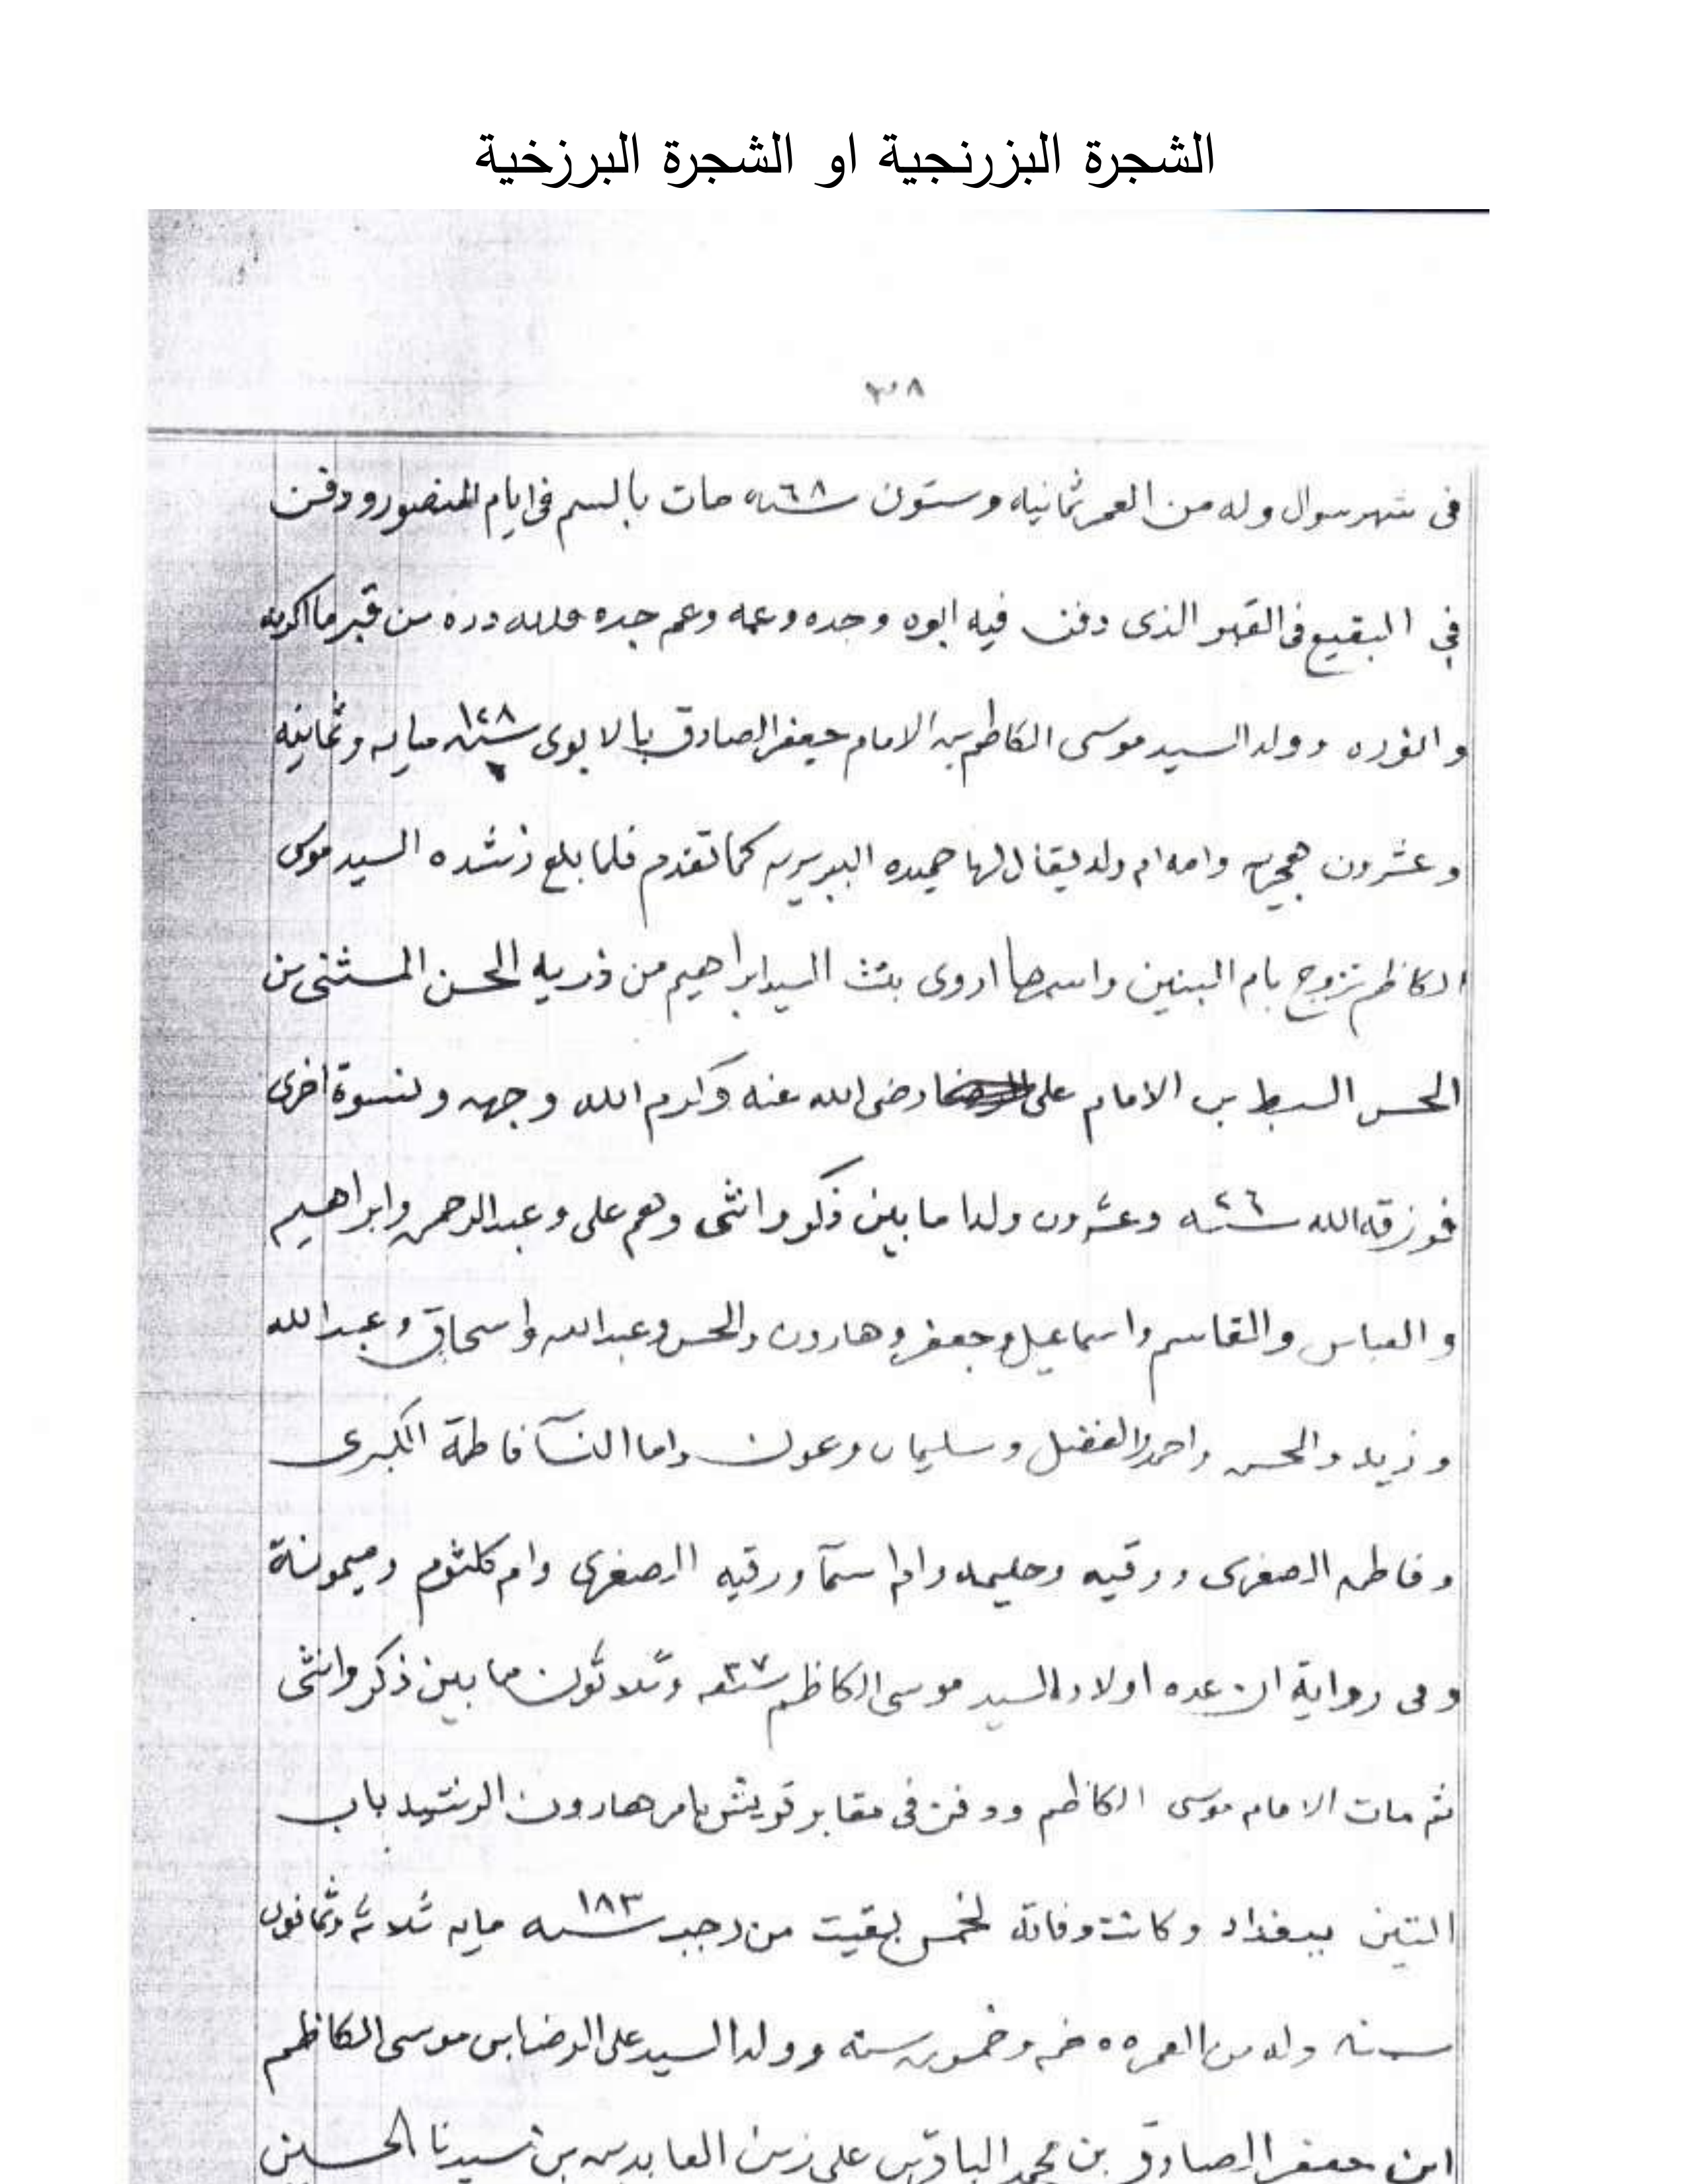 الشجرة البزرنجية او الشجرة البرزخية
٣٠٨
فى شهر سوال وله من العمر ثمانيه وستون سنه ٦٨ مات بالسم فى ايام المنصور ودفن
في البقيع فى القبر الذى دفن فيه ابوه وجده وعمه وعم جده فلله دره من قبر ما اكرمه
و انوره وولد السيد موسى الكاظم بن الامام جعفر الصادق بالابوى سنه ١٢٨ مايه وثمانيه
و عشرون هجريه وامه ام ولد يقال لها حميده البربريه كما تقدم فلما بلغ رشده السيد موسى
الكاظم تزوج بام البنين واسمها اروى بنت السيد ابراهيم من ذريه الحسن المثنى بن
الحسن السبط بن الامام على رضى الله عنه وكرم الله وجهه ونسوة اخرى
فورزقه الله سته ٢٦ وعشرون ولدا ما بين ذكر وانثى وهم على وعبدالرحمن وابراهيم
و العباس والقاسم واسماعيل وجعفر وهارون والحسن وعبدالله واسحاق وعبدالله
و زيد والحسن واحمد والفضل وسليمان وعون واما النسآ فاطمة الكبرى
و فاطمه الصغرى ورقيه وحليمه وام اسمآ ورقيه الصغرى وام كلثوم وميمونة
وفى رواية ان عده اولاد السيد موسى الكاظم سبعه ٣٧ وثلاثون ما بين ذكر وانثى
ثم مات الامام موسى الكاظم ودفن فى مقابر قريش بامر هارون الرشيد باب
التين ببغداد وكانت وفاته لخمس بقيت من رجب سنه ١٨٣ مايه ثلاثه وثمانون
سنه وله من العمر ٥٥ خمسه وخمسون سنة وولد السيد على الرضا بن موسى الكاظم
ابن جعفر الصادق بن محمد الباقر بن على زين العابدين بن سيدنا الحسين